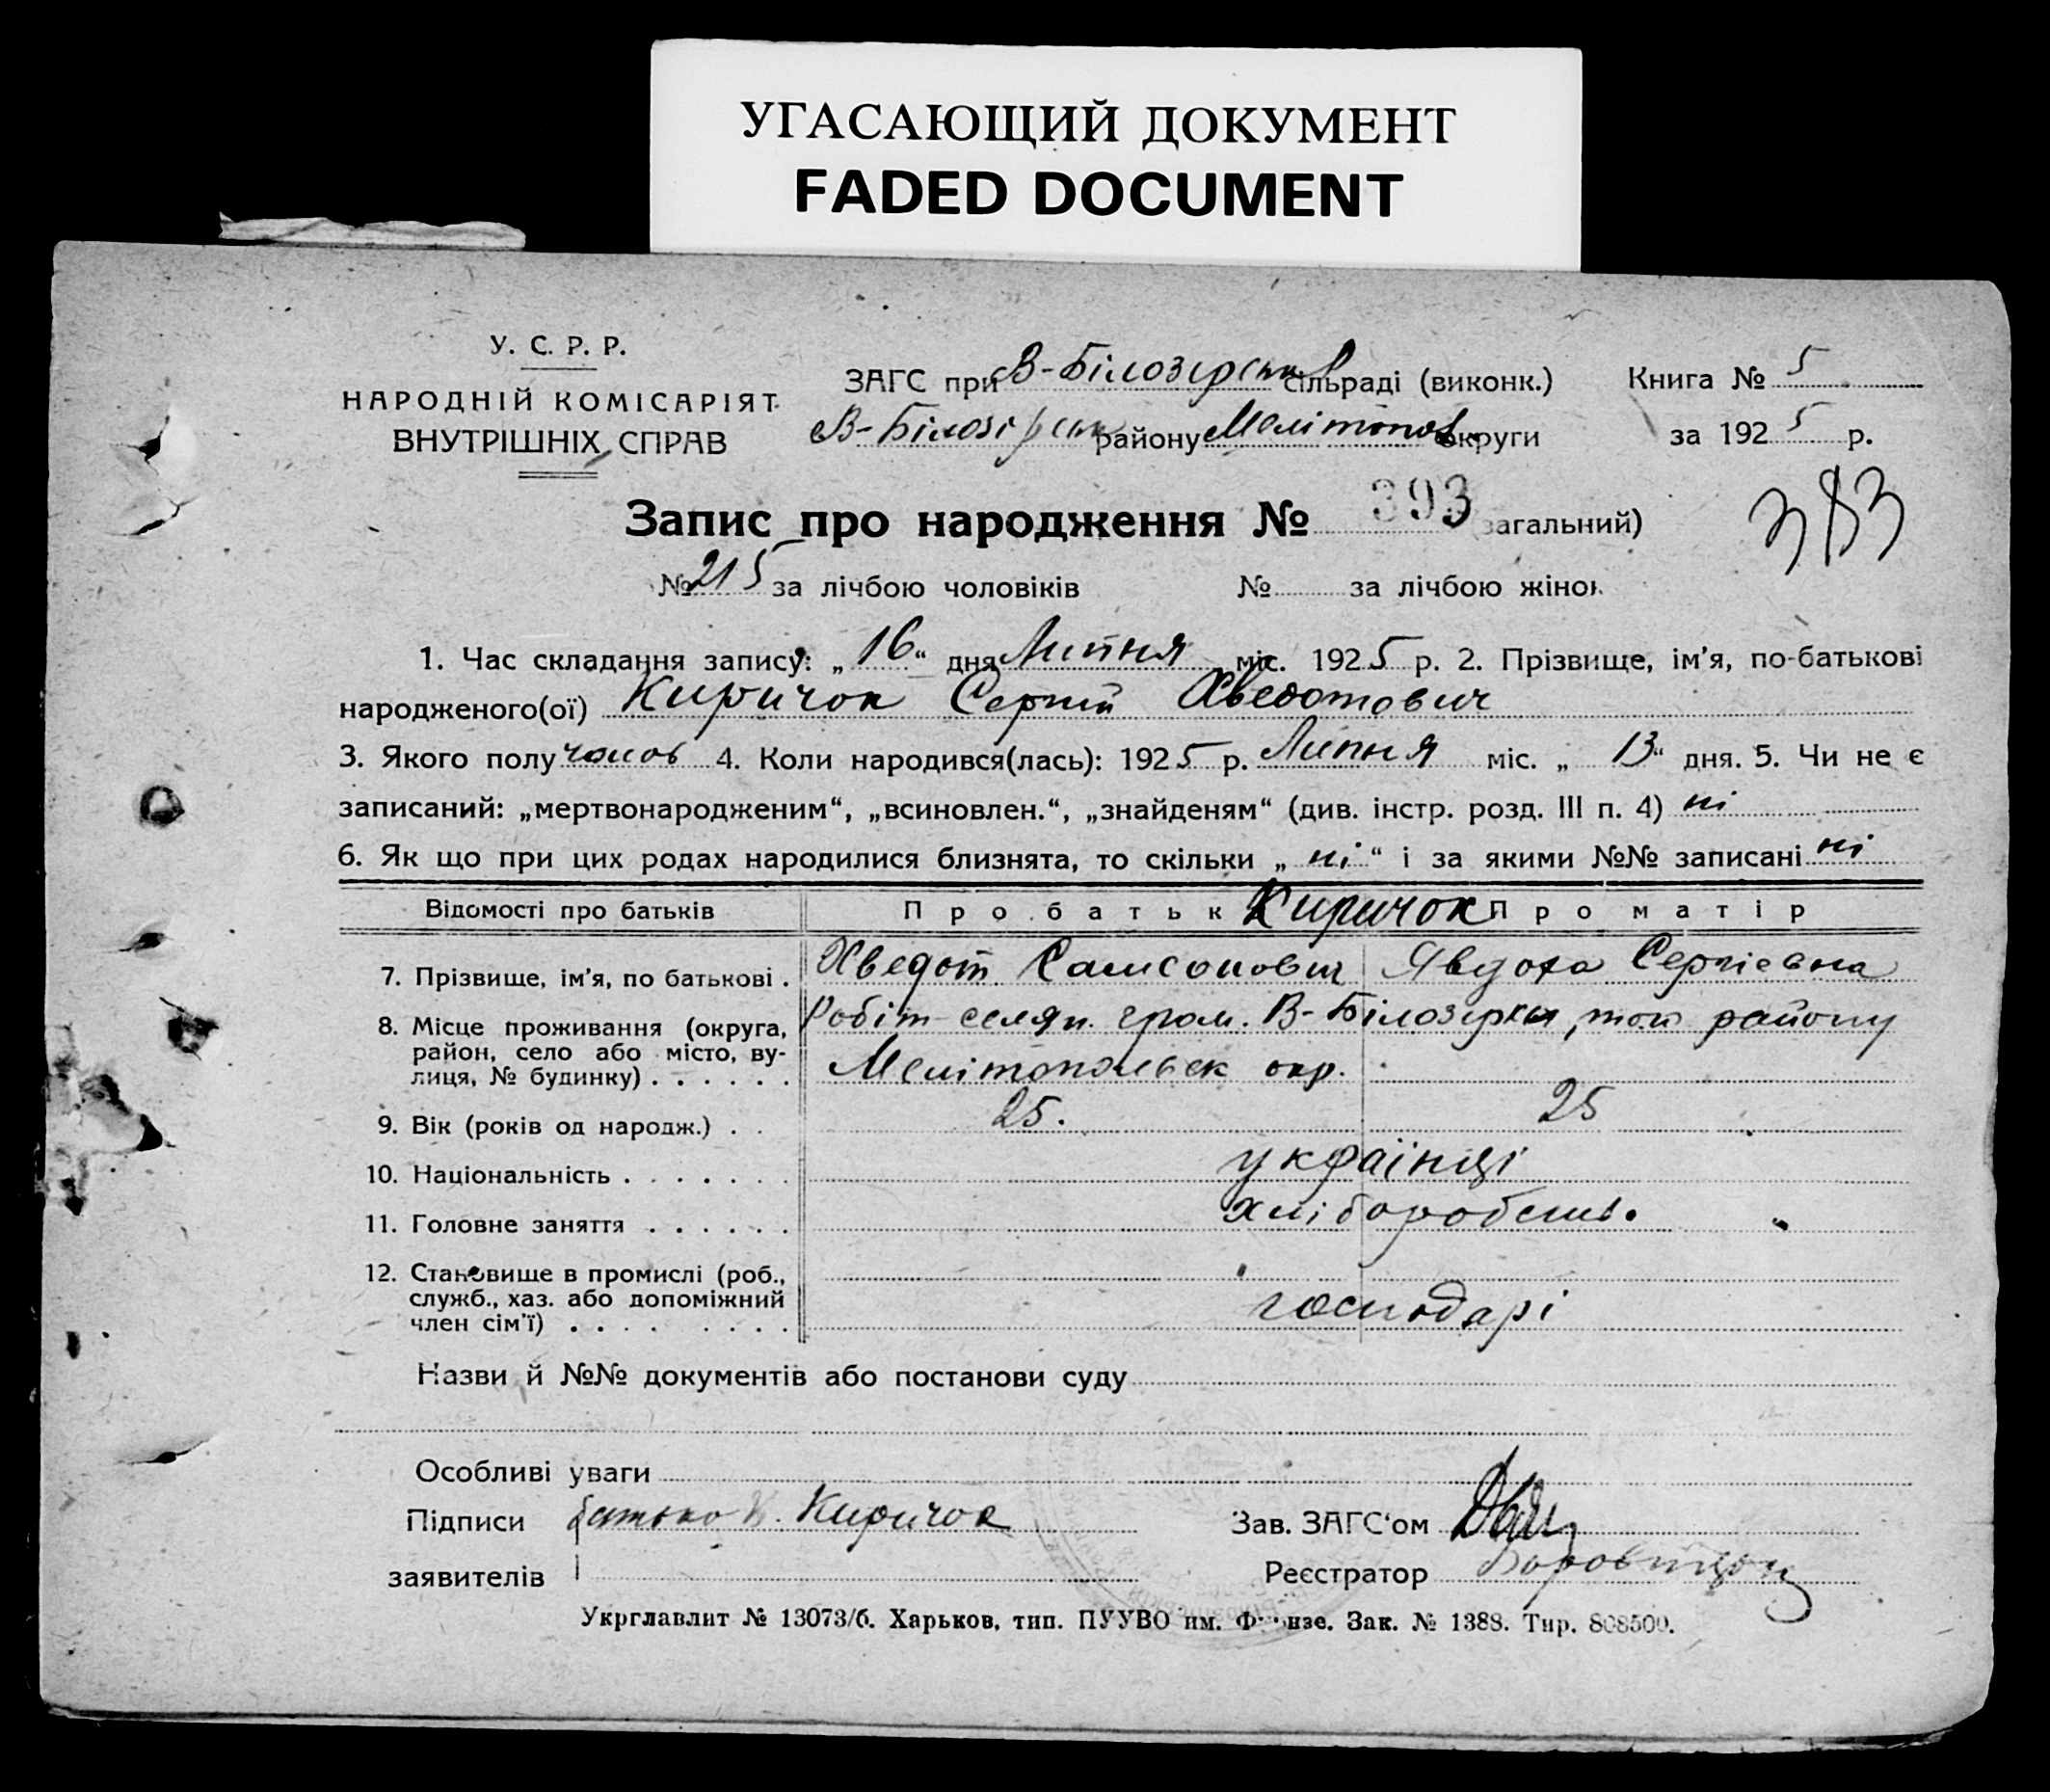 УГАСАЮЩИЙ ДОКУМЕНТ
FADED DOCUMENT
У. С. Р. Р.
НАРОДНІЙ КОМІСАРІЯТ
ВНУТРІШНІХ СПРАВ
ЗАГС при В-Білозірськ сільраді (виконк.)
В-Білозірськ району Мелітопол. округи
Книга № 5
за 1925 р.
Запис про народження № 393 загальний)
383
№ 215 за лічбою чоловіків № за лічбою жінок
1. Час складання запису: „16“ дня Липня міс. 1925 р. 2. Прізвище, ім’я, по-батькові
народженого(ої) Киричок Сергій Хведотович
3. Якого полу чолов 4. Коли народився(лась): 1925 р. Липня міс. „13“ дня. 5. Чи не є
записаний: „мертвонародженим“, „всиновлен.“, „знайденям“ (див. інстр. розд. III п. 4) ні
6. Як що при цих родах народилися близнята, то скільки „ні“ і за якими №№ записані ні
Відомості про батьків Про батьк Киричок Про матір
7. Прізвище, ім’я, по батькові . Хведот Самсонович Явдоха Сергієвна
8. Місце проживання (округа, Робіт селян. гром. В-Білозірки, того району
район, село або місто, ву-
лиця, № будинку) . . . . . . Мелітопольськ окр.
9. Вік (років од народж.) . . 25. 25
10. Національність . . . . . . . українці
11. Головне заняття . . . . . . хліборобств.
12. Становище в промислі (роб.,
служб., хаз. або допоміжний
член сім’ї) . . . . . . . . господарі
Назви й №№ документів або постанови суду
Особливі уваги
Підписи батько К. Киричок
Зав. ЗАГС‘ом
заявителів
Реєстратор
Укрглавлит № 13073/б. Харьков, тип. ПУУВО им. Фрунзе. Зак. № 1388. Тир. 808500.